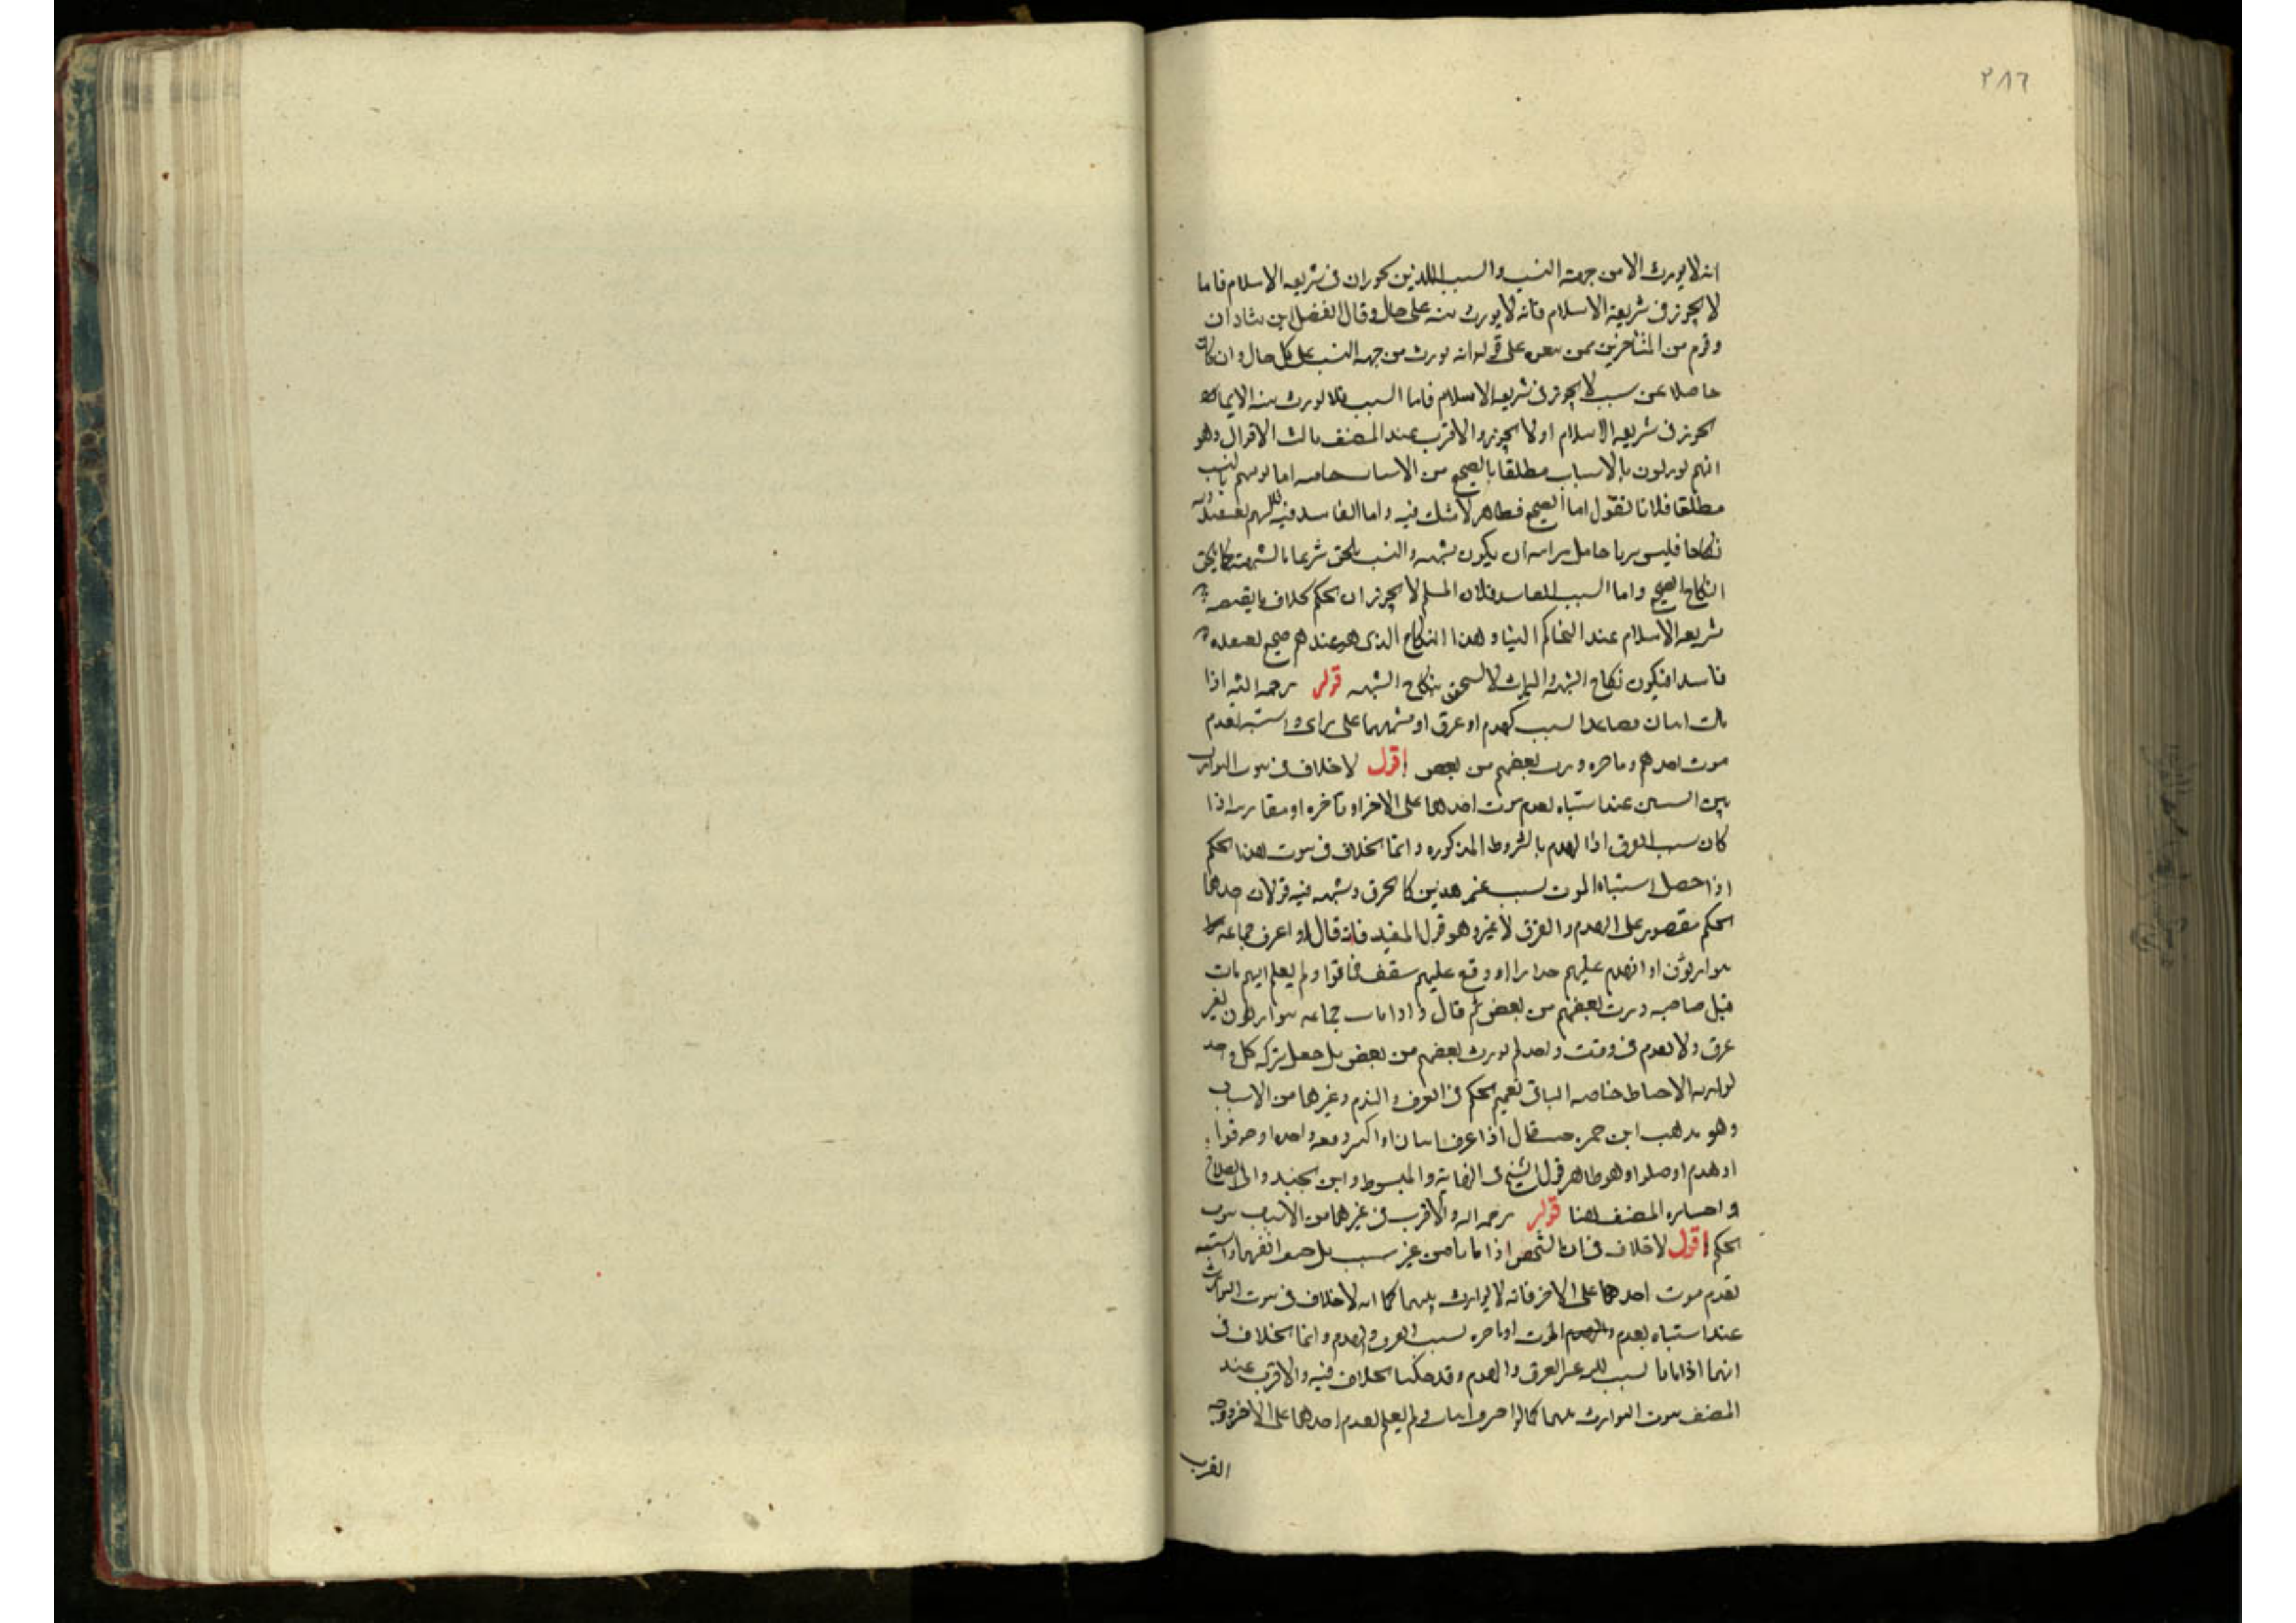 ٣٨٦
انه لا يورث الا من جهة النسب والسبب اللذين يجوزان فى شريعه الاسلام فاما
لا يجوز فى شريعة الاسلام فانه لا يورث منه على حال وقال الفضل ابن شادان
وقوم من المتأخرين ممن تبعه على قوله انه يورث من جهه النسب على كل حال وان كان
حاصلا عن سبب لا يجوز فى شريعه الاسلام فاما السبب فلا يورث منه الا بما
يجوز فى شريعه الاسلام او لا يجوز والاقرب عند المصنف ثالث الاقوال وهو
انهم يورثون بالاسباب مطلقا بالصحيح من الاسباب خاصه اما توريثهم بالنسب
مطلقا فلانا نقول اما الصحيح فظاهر لا شك فيه واما الفاسد فيه
نكاحا فليس بزنا يكون شبهه والنسب يلحق شرعا بالشبهة كما يلحق
النكاح الصحيح واما السبب الفاسد فلان المسلم لا يجوز ان يحكم بخلاف ما يقتضيه
شريعه الاسلام عند التحاكم الينا وهذا النكاح الذى هو عندهم صحيح نعتقده
فاسدا فيكون نكاح الشبهه والميراث لا يستحق بنكاح الشبهه قوله رحمه الله اذا
مات اثنان فصاعدا بسبب كهدم او غرق او شبههما على راى واشتبه تقدم
موت احدهم وتاخره ورث بعضهم من بعض اقول لا خلاف فى ثبوت التوارث
بين عند اشتباه تقدم موت احدهما على الاخر او تأخره او
كان سبب الغرق اذا الهدم بالشروط المذكوره وانما الخلاف فى ثبوت هذا الحكم
اذا حصل اشتباه الموت بسبب غير هذين كالحرق وشبهه فيه قولان احدهما
الحكم مقصور على الهدم والغرق لا غير وهو قول المفيد فانه قال اذا غرق جماعه
يتوارثون او انهدم عليهم جدار او وقع عليهم سقف فماتوا ولم يعلم ايهم مات
قبل صاحبه ورث بعضهم من بعض ثم قال واذا مات جماعه يتوارثون بغير
غرق ولا هدم فى وقت واحد لم يورث بعضهم من بعض بل جعل تركه كل واحد
لوارثه الاحياء خاصه الثانى تعميم الحكم فى الغرق والهدم وغيرهما من الاسباب
وهو مذهب ابن حمزه حيث قال اذا غرق اثنان او اكثر دفعه واحده او حرقوا
او هدم او قتلوا وهو ظاهر قول الشيخ فى النهاية والمبسوط وابن الجنيد وابى الصلاح
واختاره المصنف هنا قوله رحمه الله والاقرب فى غيرهما من الاسباب ثبوت
الحكم اقول لا خلاف فى ان الشخصين اذا ماتا من غير سبب بل حتف انفهما واشتبه
تقدم موت احدهما على الاخر فانه لا توارث بينهما كما انه لا خلاف فى ثبوت التوارث
عند اشتباه تقدم الموت او تاخره بسبب الغرق والهدم وانما الخلاف فى
انهما اذا ماتا بسبب غير الغرق والهدم وقد حكينا الخلاف فيه والاقرب عند
المصنف ثبوت التوارث بينهما كما لو احرق اثنان ولم يعلم تقدم احدهما على الاخر ووجه
القرب